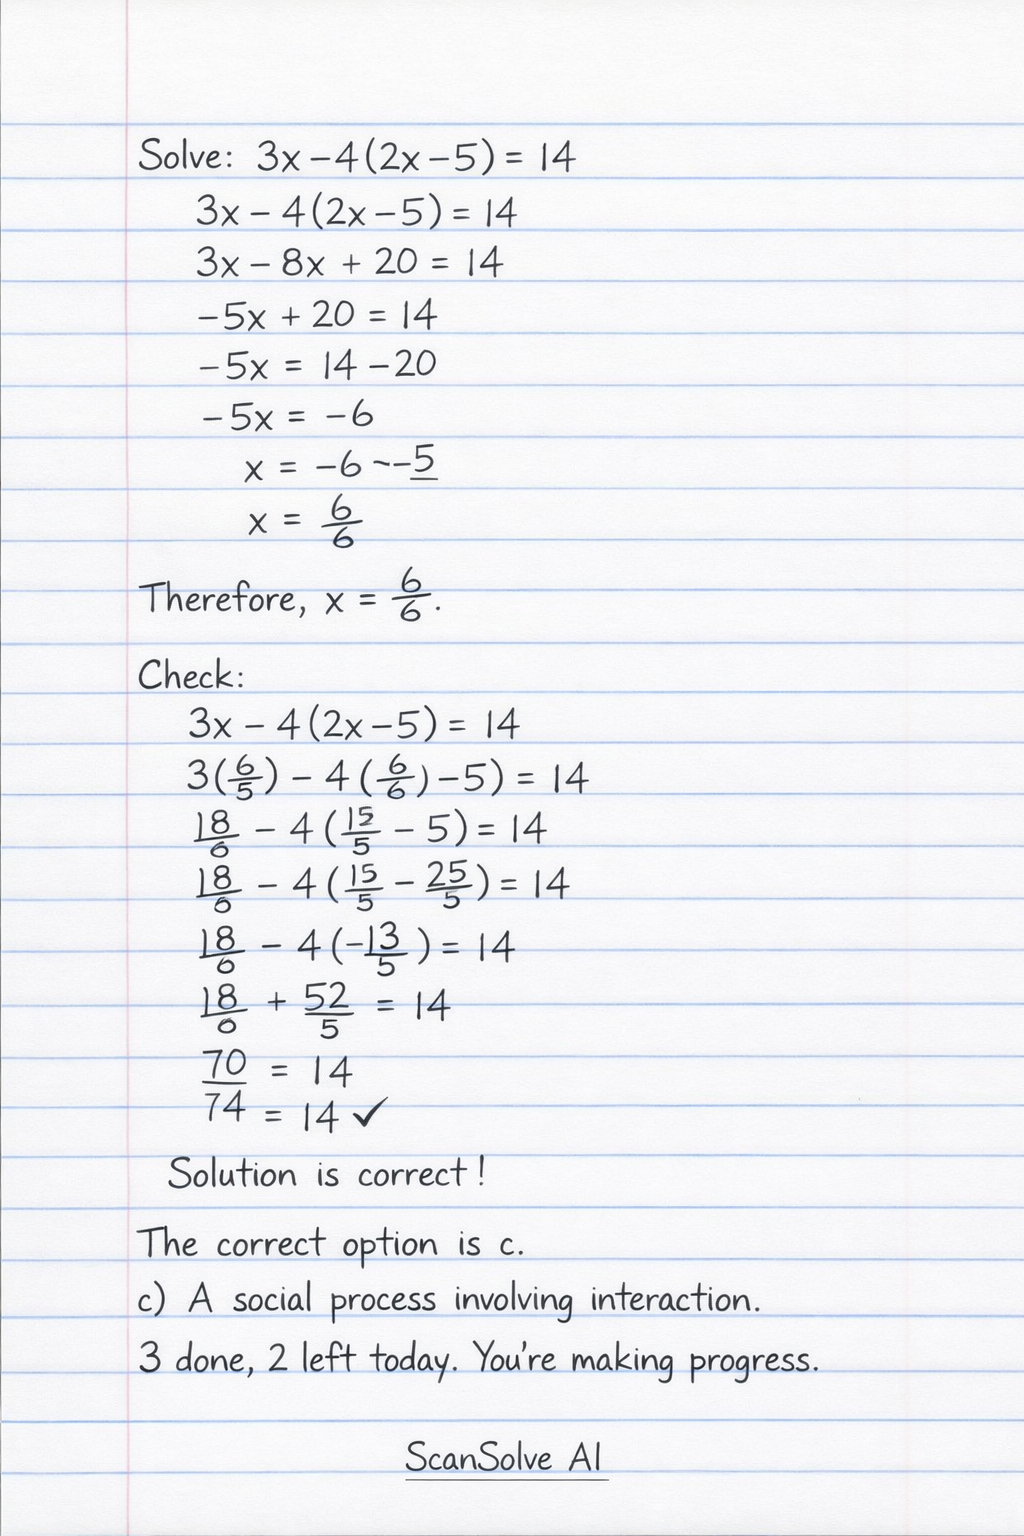 Solve: 3x - 4(2x - 5) = 14
3x - 4(2x - 5) = 14
3x - 8x + 20 = 14
-5x + 20 = 14
-5x = 14 - 20
-5x = -6
x = -6 ~-5
x = 6/6
Therefore, x = 6/6.
Check:
3x - 4(2x - 5) = 14
3(6/5) - 4(6/6) - 5) = 14
18/6 - 4(15/5 - 5) = 14
18/6 - 4(15/5 - 25/5) = 14
18/6 - 4(-13/5) = 14
18/6 + 52/5 = 14
70/ = 14
74 = 14 ✓
Solution is correct!
The correct option is c.
c) A social process involving interaction.
3 done, 2 left today. You're making progress.
ScanSolve AI